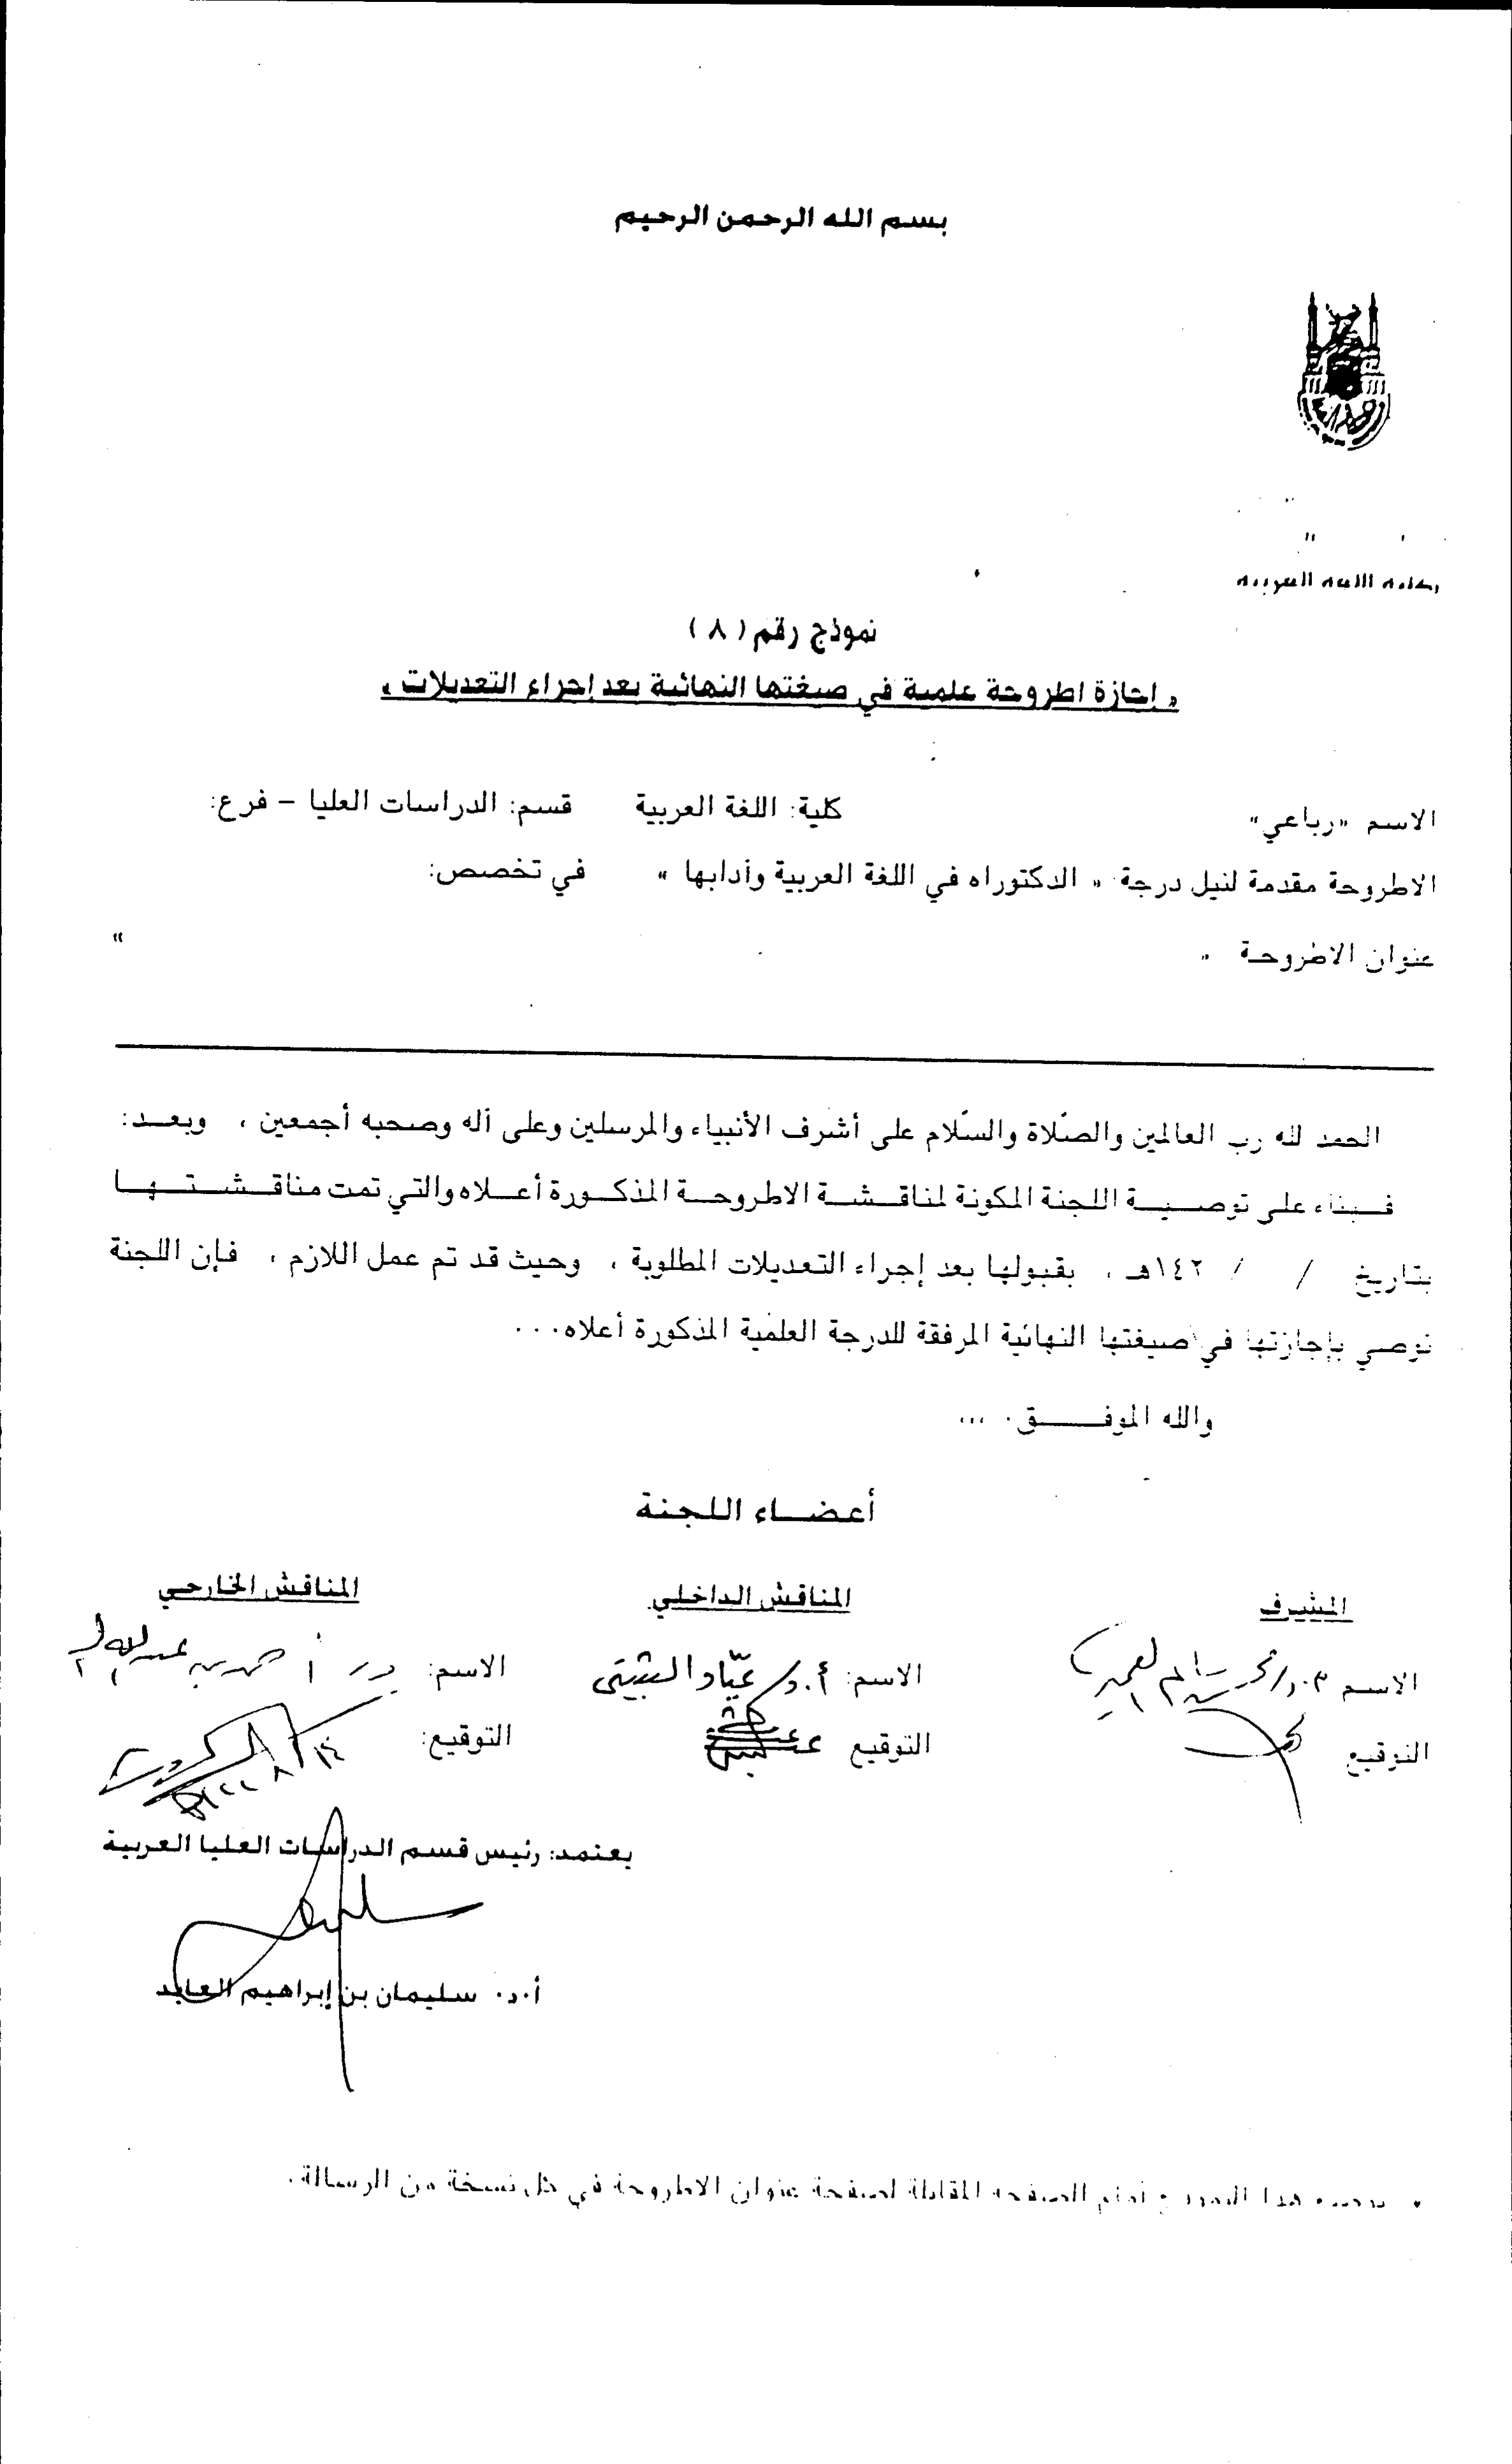 بسم الله الرحمن الرحيم
كلية اللغة العربية
نموذج رقم ( ٨ )
« إجازة اطروحة علمية في صيغتها النهائية بعد إجراء التعديلات »
الاسم «رباعي» كلية: اللغة العربية قسم: الدراسات العليا – فرع:
الاطروحة مقدمة لنيل درجة « الدكتوراه في اللغة العربية وأدابها » في تخصص:
عنوان الاطروحة « »
الحمد لله رب العالمين والصّلاة والسّلام على أشرف الأنبياء والمرسلين وعلى آله وصحبه أجمعين ، وبعـد:
فـبناء على توصـيـة اللجنة المكونة لمناقـشـة الاطروحـة المذكـورة أعـلاه والتي تمت مناقـشـتـهـا
بتاريخ / / ١٤٢هـ ، بقبولها بعد إجراء التعديلات المطلوبة ، وحيث قد تم عمل اللازم ، فإن اللجنة
توصي بإجازتها في صيغتها النهائية المرفقة للدرجة العلمية المذكورة أعلاه...
والله الموفـــق. ...
أعضـاء اللجنة
المشرف المناقش الداخلي المناقش الخارجي
الاسم الاسم: أ.د/ عيّاد الثبيتي الاسم: عبدالله
التوقيع التوقيع التوقيع:
يعتمد: رئيس قسم الدراسات العليا العربية
أ.د. سليمان بن إبراهيم العايد
هذا النموذج أمام الصفحة المقابلة لصفحة عنوان الاطروحة في كل نسخة من الرسالة.